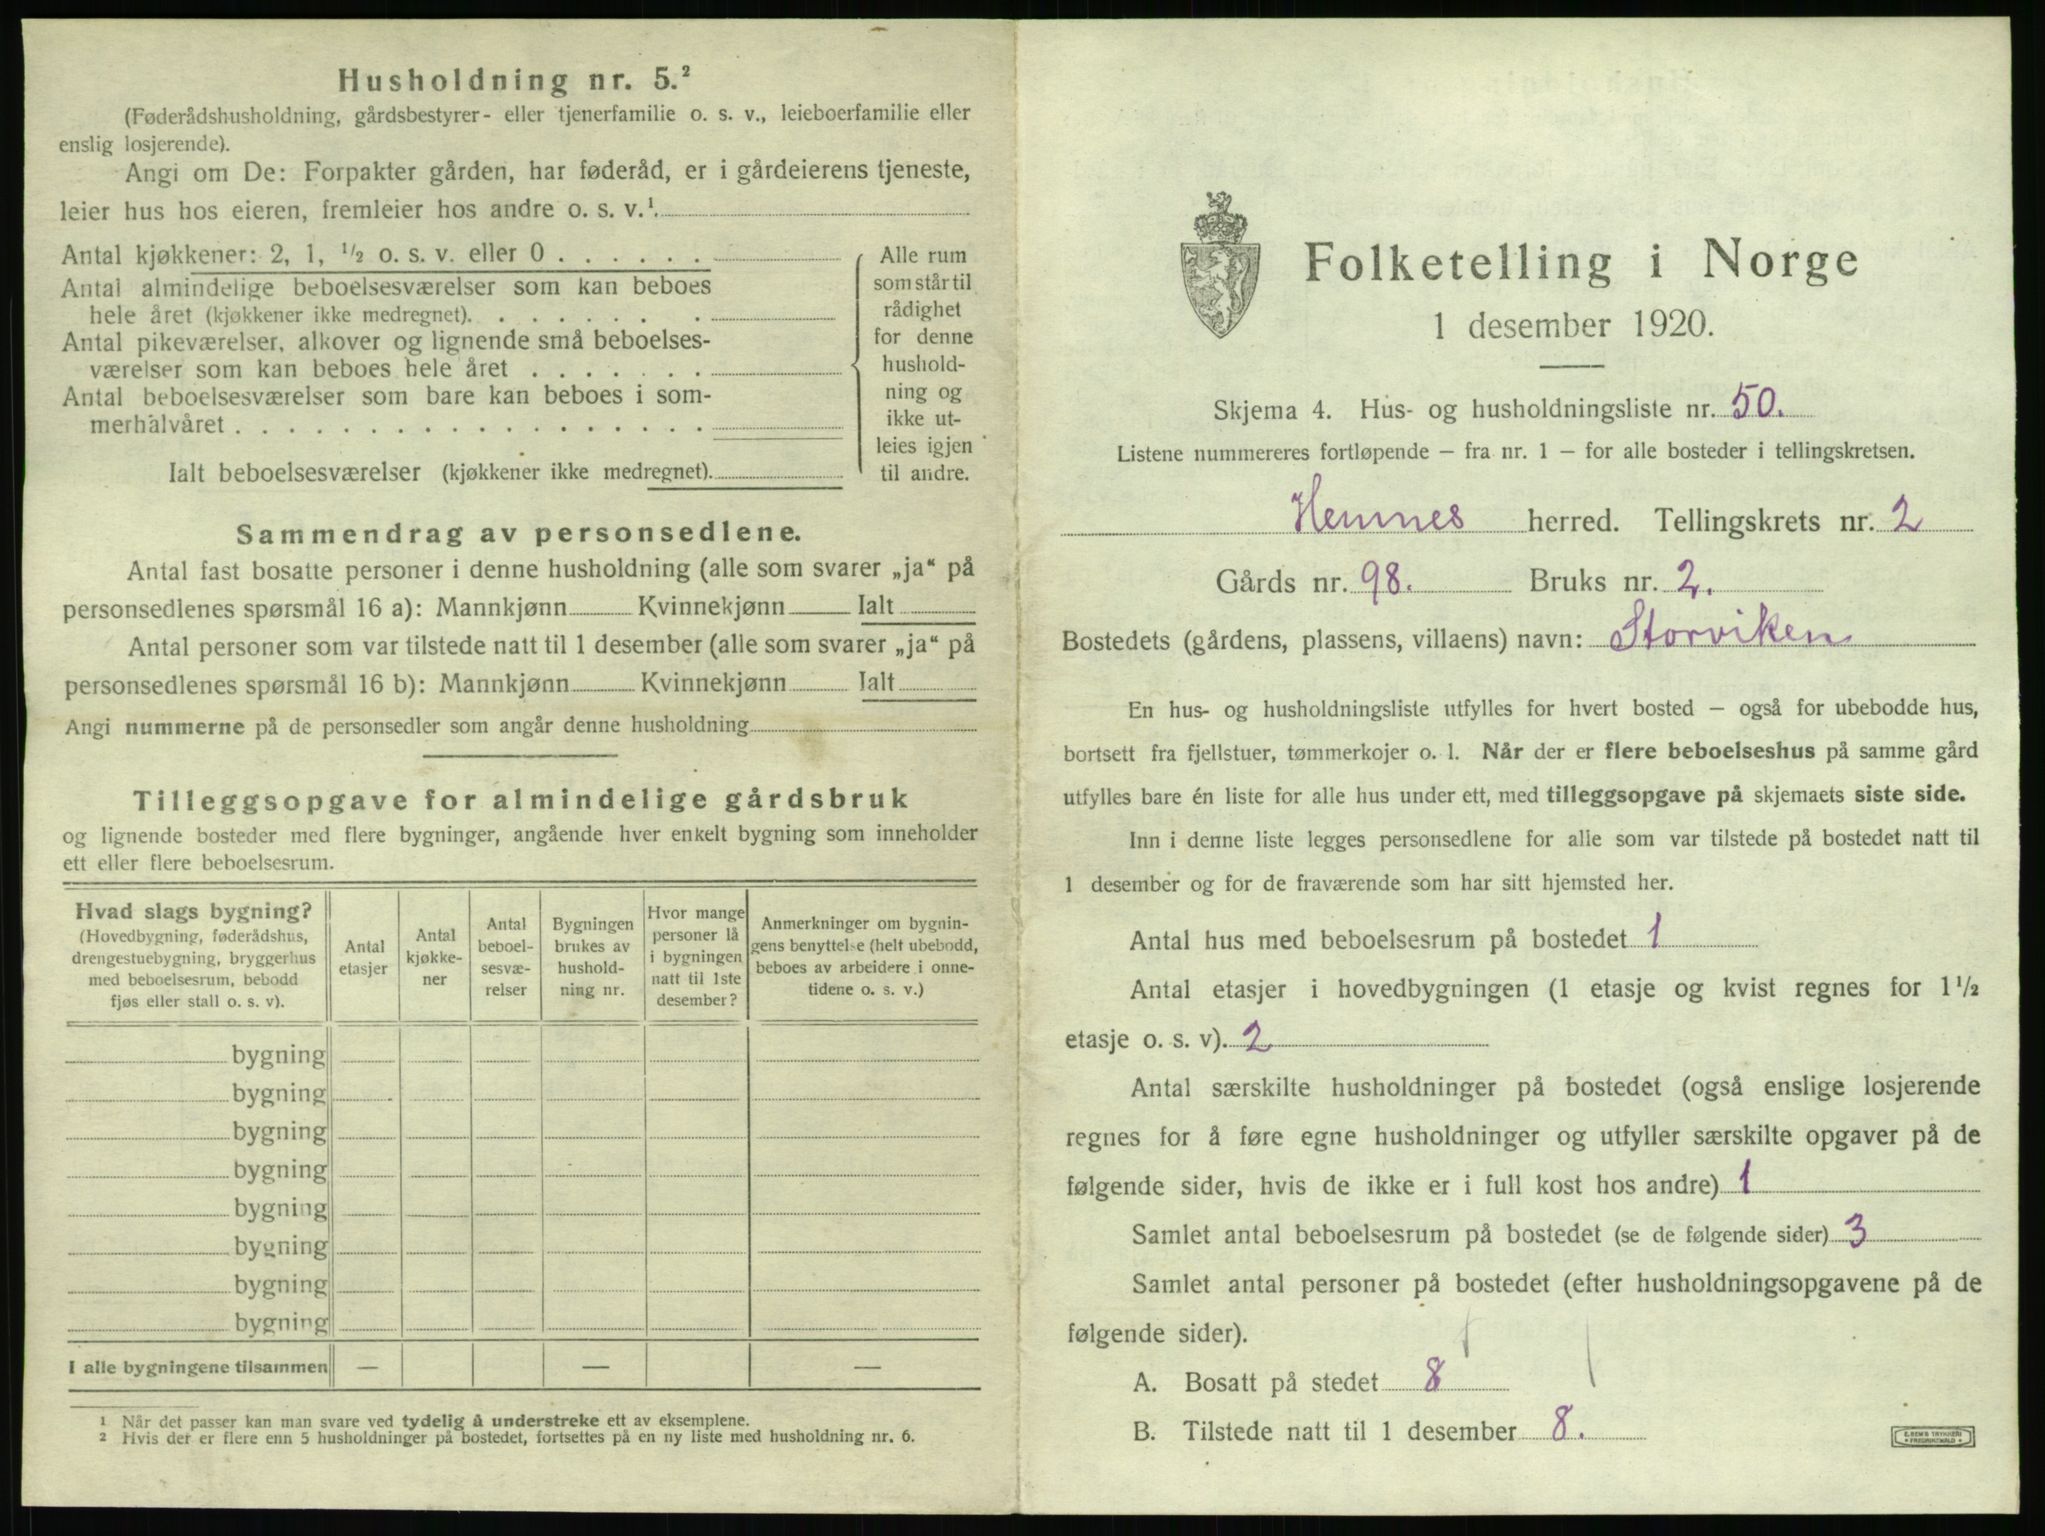 Husholdning nr. 5.²
(Føderådshusholdning, gårdsbestyrer- eller tjenerfamilie o. s. v., leieboerfamilie eller
enslig losjerende).
Angi om De: Forpakter gården, har føderåd, er i gårdeierens tjeneste,
leier hus hos eieren, fremleier hos andre o. s. v.¹.
Antal kjøkkener: 2, 1, ½ o. s. v. eller 0 . . . . . .
Antal almindelige beboelsesværelser som kan beboes
hele året (kjøkkener ikke medregnet). . . . . . . .
Antal pikeværelser, alkover og lignende små beboelses-
værelser som kan beboes hele året . . . . . . .
Antal beboelsesværelser som bare kan beboes i som-
merhalvåret . . . . . . . . . . . . . . . . . .
Ialt beboelsesværelser (kjøkkener ikke medregnet).
Alle rum
som står til
rådighet
for denne
hushold-
ning og
ikke ut-
leies igjen
til andre.
Sammendrag av personsedlene.
Antal fast bosatte personer i denne husholdning (alle som svarer „ja“ på
personsedlenes spørsmål 16 a): Mannkjønn Kvinnekjønn Ialt
Antal personer som var tilstede natt til 1 desember (alle som svarer „ja“ på
personsedlenes spørsmål 16 b): Mannkjønn Kvinnekjønn Ialt
Angi nummerne på de personsedler som angår denne husholdning
Tilleggsopgave for almindelige gårdsbruk
og lignende bosteder med flere bygninger, angående hver enkelt bygning som inneholder
ett eller flere beboelsesrum.
Hvad slags bygning?
(Hovedbygning, føderådshus,
drengestuebygning, bryggerhus
med beboelsesrum, bebodd
fjøs eller stall o. s. v).
Antal
etasjer
Antal
kjøkke-
ner
Antal
beboel-
sesvæ-
relser
Bygningen
brukes av
hushold-
ning nr.
Hvor mange
personer lå
i bygningen
natt til 1ste
desember?
Anmerkninger om bygnin-
gens benyttelse (helt ubebodd,
beboes av arbeidere i onne-
tidene o. s. v.)
bygning
bygning
bygning
bygning
bygning
bygning
bygning
bygning
I alle bygningene tilsammen — — —
1 Når det passer kan man svare ved tydelig å understreke ett av eksemplene.
2 Hvis der er flere enn 5 husholdninger på bostedet, fortsettes på en ny liste med husholdning nr. 6.
Folketelling i Norge
1 desember 1920.
Skjema 4. Hus- og husholdningsliste nr. 50.
Listene nummereres fortløpende – fra nr. 1 – for alle bosteder i tellingskretsen.
Hemnes herred. Tellingskrets nr. 2
Gårds nr. 98. Bruks nr. 2.
Bostedets (gårdens, plassens, villaens) navn: Storviken
En hus- og husholdningsliste utfylles for hvert bosted – også for ubebodde hus,
bortsett fra fjellstuer, tømmerkojer o. l. Når der er flere beboelseshus på samme gård
utfylles bare én liste for alle hus under ett, med tilleggsopgave på skjemaets siste side.
Inn i denne liste legges personsedlene for alle som var tilstede på bostedet natt til
1 desember og for de fraværende som har sitt hjemsted her.
Antal hus med beboelsesrum på bostedet 1
Antal etasjer i hovedbygningen (1 etasje og kvist regnes for 1½
etasje o. s. v). 2
Antal særskilte husholdninger på bostedet (også enslige losjerende
regnes for å føre egne husholdninger og utfyller særskilte opgaver på de
følgende sider, hvis de ikke er i full kost hos andre) 1
Samlet antal beboelsesrum på bostedet (se de følgende sider) 3
Samlet antal personer på bostedet (efter husholdningsopgavene på de
følgende sider).
A. Bosatt på stedet 8
B. Tilstede natt til 1 desember 8.